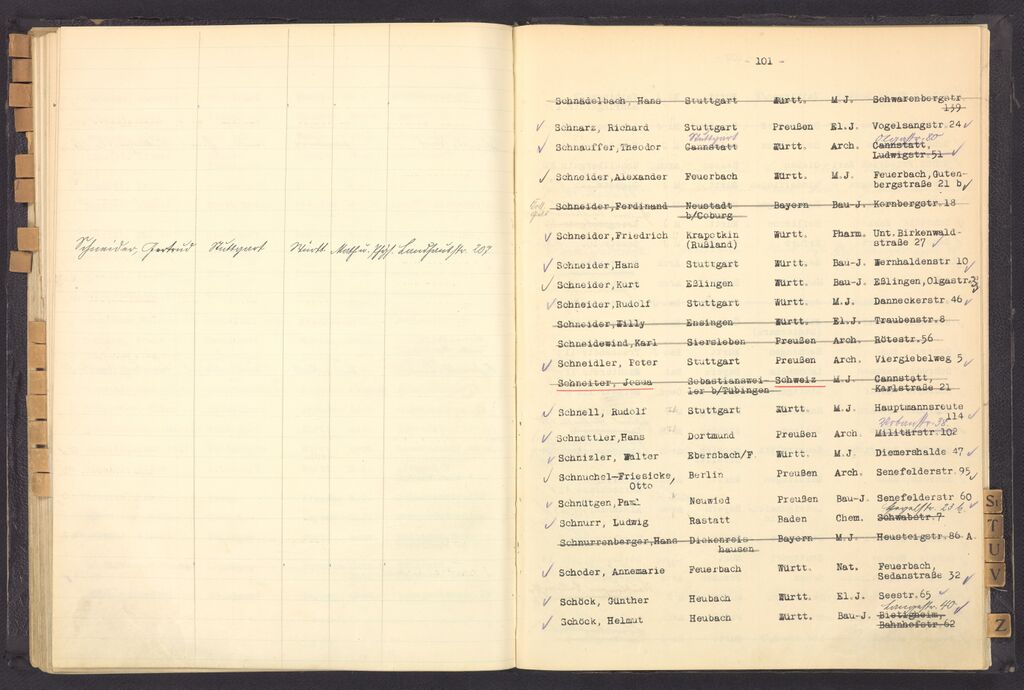 Schneider, Gertrud Stuttgart Württ. Math. u. Phys. Landhausstr. 207
- 101 -
Schnädelbach, Hans Stuttgart Württ. M.J. Schwarenbergstr
139
Schnarz, Richard Stuttgart Preußen El.J. Vogelsangstr.24
Stuttgart Olgastr. 80
Schnauffer,Theodor Cannstatt Württ. Arch. Cannstatt,
Ludwigstr.51
Schneider,Alexander Feuerbach Württ. M.J. Feuerbach,Guten-
bergstraße 21 b
Schneider,Ferdinand Neustadt Bayern Bau-J. Kernbergstr.18
b/Coburg
Schneider,Friedrich Krapotkin Württ. Pharm. Unt.Birkenwald-
(Rußland) straße 27
Schneider,Hans Stuttgart Württ. Bau-J. Wernhaldenstr 10
Schneider,Kurt Eßlingen Württ. Bau-J. Eßlingen,Olgastr.
Schneider,Rudolf Stuttgart Württ. M.J. Danneckerstr 46
Schneider,Willy Ensingen Württ. El.J. Traubenstr.8
Schneidewind,Karl Siersleben Preußen Arch. Rötestr.56
Schneidler, Peter Stuttgart Preußen Arch. Viergiebelweg 5
Schneiter, Josua Sebastianswei- Schweiz M.J. Cannstatt,
ler b/Tübingen Karlstraße 21
Schnell, Rudolf Stuttgart Württ. M.J. Hauptmannsreute
114
Urbanstr. 38
Schnettler,Hans Dortmund Preußen Arch. Militärstr.102
Schnizler, Walter Ebersbach/F. Württ. M.J. Diemershalde 47
Schnuchel-Friesicke, Berlin Preußen Arch. Senefelderstr.95
Otto
Schnütgen, Paul Neuwied Preußen Bau-J. Senefelderstr 60
Schnurr, Ludwig Rastatt Baden Chem. Schwabstr.7
Schnurrenberger,Hans Dickenreis Bayern M.J. Heusteigstr.86 A
hausen
Schoder, Annemarie Feuerbach Württ. Nat. Feuerbach,
Sedanstraße 32
Schöck, Günther Heubach Württ. El.J. Seestr.65
Langestr. 40
Schöck, Helmut Heubach Württ. Bau-J. Bietigheim,
Bahnhofstr.62
St
T
U
V
Z